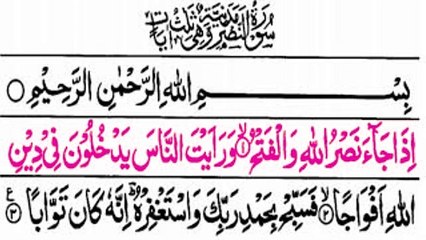 سُوْرَةُ النَّصْرِ مَدَنِيَّةٌ وَّهِيَ ثَلٰثُ اٰيَاتٍ
بِسْمِ اللهِ الرَّحْمٰنِ الرَّحِيْمِ ○
اِذَا جَآءَ نَصْرُ اللهِ وَالْفَتْحُ ۙ﴿۱﴾ وَرَاَيْتَ النَّاسَ يَدْخُلُوْنَ فِيْ دِيْنِ
اللهِ اَفْوَاجًا ۙ﴿۲﴾ فَسَبِّحْ بِحَمْدِ رَبِّكَ وَاسْتَغْفِرْهُ ؔ اِنَّهٗ كَانَ تَوَّابًا ﴿۳﴾ ع